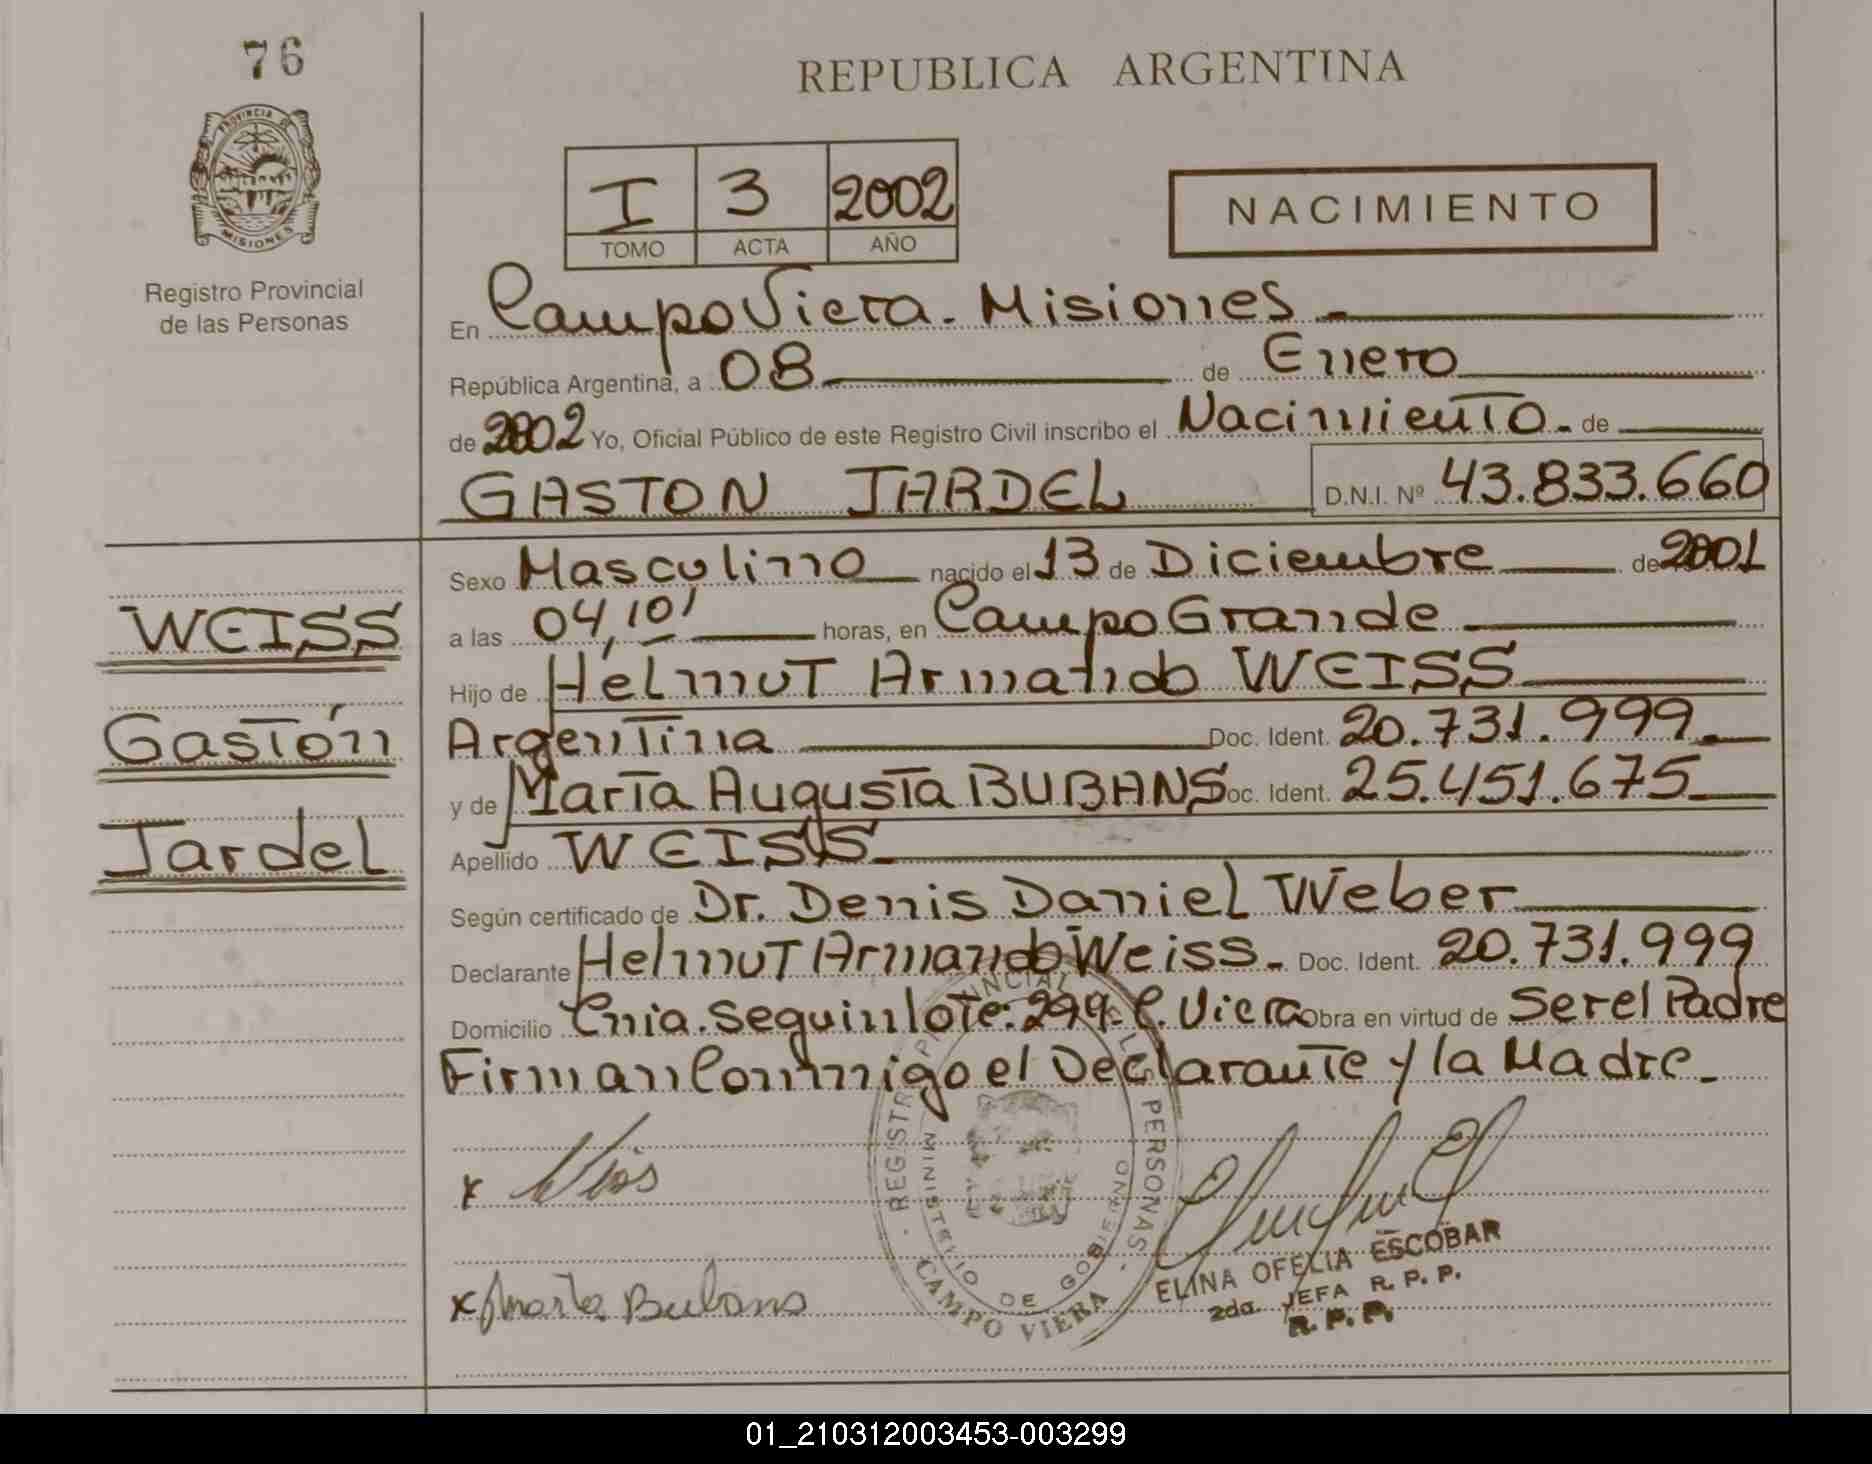 76
REPUBLICA ARGENTINA
PROVINCIA DE
MISIONES
Registro Provincial
de las Personas
I 3 2002
TOMO ACTA AÑO
NACIMIENTO
En Campo Viera - Misiones -
República Argentina, a 08 de Enero
de 2002 Yo, Oficial Público de este Registro Civil inscribo el Nacimiento - de
GASTON JARDEL D.N.I. Nº 43.833.660
Sexo Masculino nacido el 13 de Diciembre de 2001
a las 04,10' horas, en Campo Grande
Hijo de Helmut Armando WEISS
Argentina Doc. Ident. 20.731.999
y de Marta Augusta BUBANS Doc. Ident. 25.451.675
Apellido WEISS
Según certificado de Dr. Denis Daniel Weber
Declarante Helmut Armando Weiss - Doc. Ident. 20.731.999
Domicilio Cnia. Seguin lote: 299- C. Viera Obra en virtud de Ser el Padre
Firman Conmigo el Declarante y la Madre -
WEISS
Gastón
Jardel
x
x Marta Bubans
REGISTRO PROVINCIAL DE LAS PERSONAS
MINISTERIO DE GOBIERNO
CAMPO VIERA
ELINA OFELIA ESCOBAR
2da. JEFA R. P. P.
R. P. P.
01_210312003453-003299